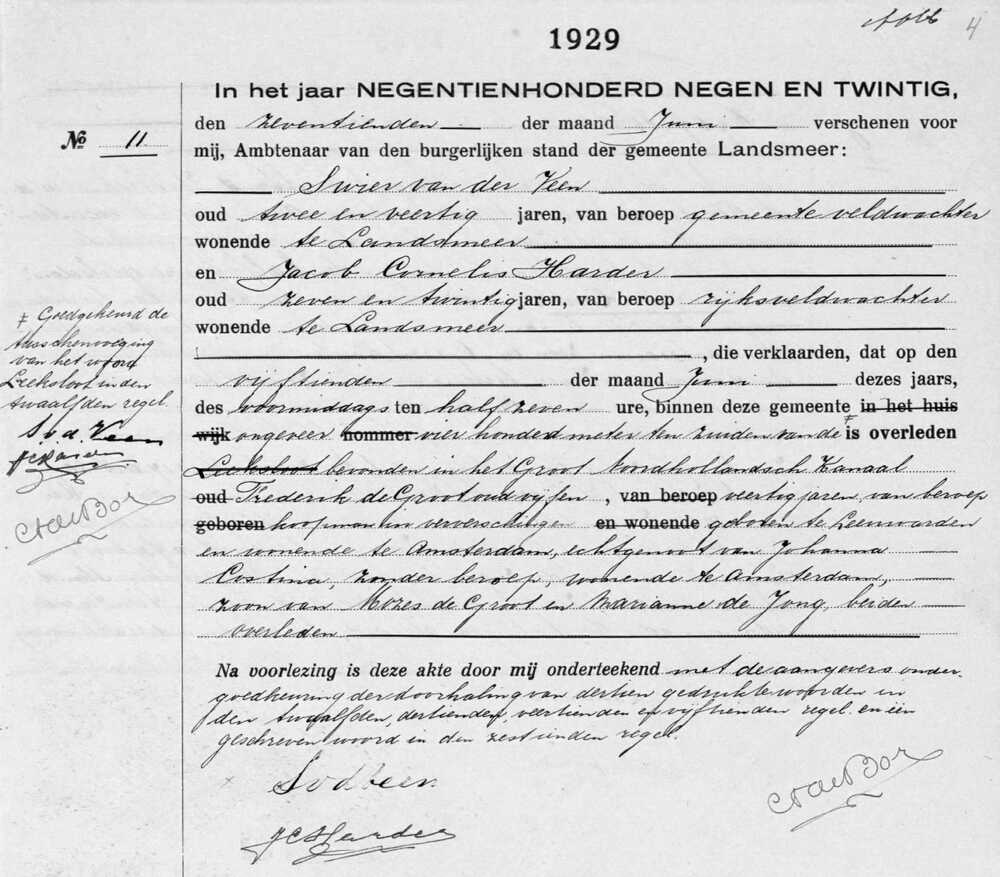 4
1929
In het jaar NEGENTIENHONDERD NEGEN EN TWINTIG,
den zeventienden der maand Juni verschenen voor
No 11
mij, Ambtenaar van den burgerlijken stand der gemeente Landsmeer:
Swier van der Veen
oud twee en veertig jaren, van beroep gemeente veldwachter
wonende te Landsmeer
en Jacob Cornelis Harder
oud zeven en twintig jaren, van beroep rijksveldwachter
wonende te Landsmeer
, die verklaarden, dat op den
vijftienden der maand Juni dezes jaars,
des voormiddags ten half zeven ure, binnen deze gemeente in het huis
wijk ongeveer nommer vier honderd meter ten zuiden van de ≠ is overleden
Leeksloot bevonden in het Groot Noordhollandsch Kanaal
oud Frederik de Groot oud vijfen , van beroep veertig jaren, van beroep
geboren koopman in ververschingen en wonende geboren te Leeuwarden
en wonende te Amsterdam, echtgenoot van Johanna
Costina, zonder beroep, wonende te Amsterdam,
zoon van Mozes de Groot en Marianne de Jong, beiden
overleden
≠ Goedgekeurd de
tusschenvoeging
van het woord
Leeksloot in den
twaalfden regel.
S v d Veen
JC Harder
Na voorlezing is deze akte door mij onderteekend met de aangevers onder
goedkeuring der doorhaling van dertien gedrukte woorden in
den twaalfden, dertienden, veertienden en vijftienden regel en één
geschreven woord in den zestienden regel.
S v d Veen
JC Harder